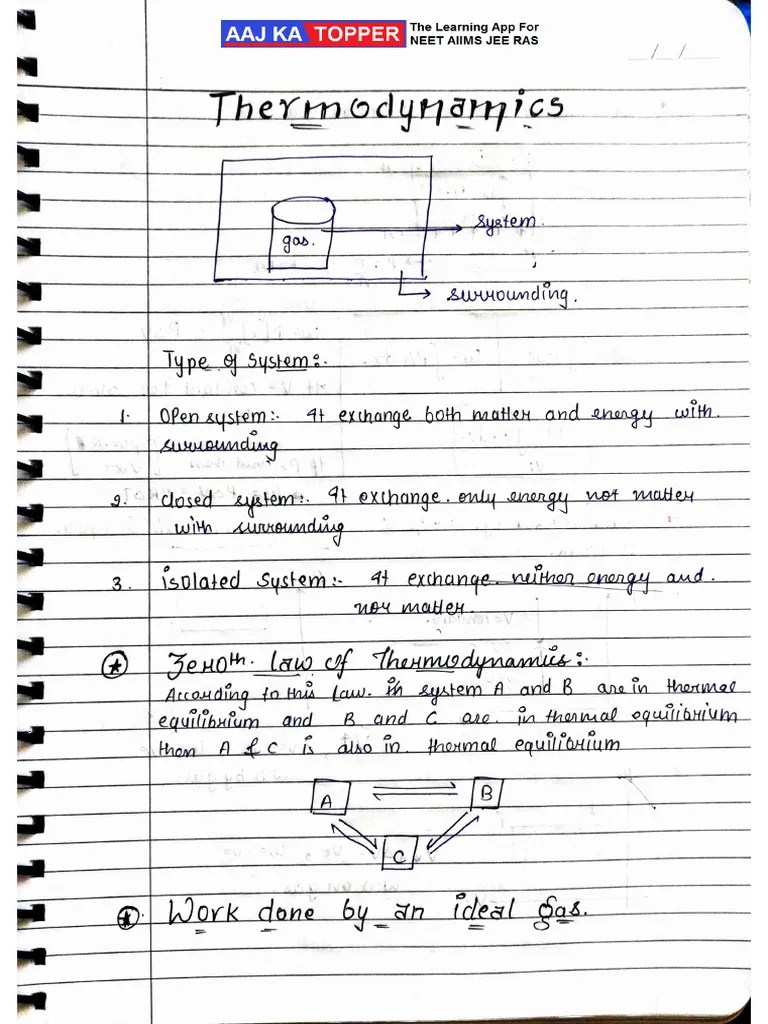 AAJ KA TOPPER
The Learning App For
NEET AIIMS JEE RAS
_/_/__
Thermodynamics
gas.
system.
surrounding.
Type of System:-
1. Open system:- It exchange both matter and energy with
surrounding
2. closed system:- It exchange only energy not matter
with surrounding
3. isolated system:- It exchange neither energy and
nor matter.
Zeroth Law of Thermodynamics:-
According to this Law. in system A and B are in thermal
equilibrium and B and C are in thermal equilibrium
then A & C is also in thermal equilibrium
A B
C
Work done by an ideal gas.